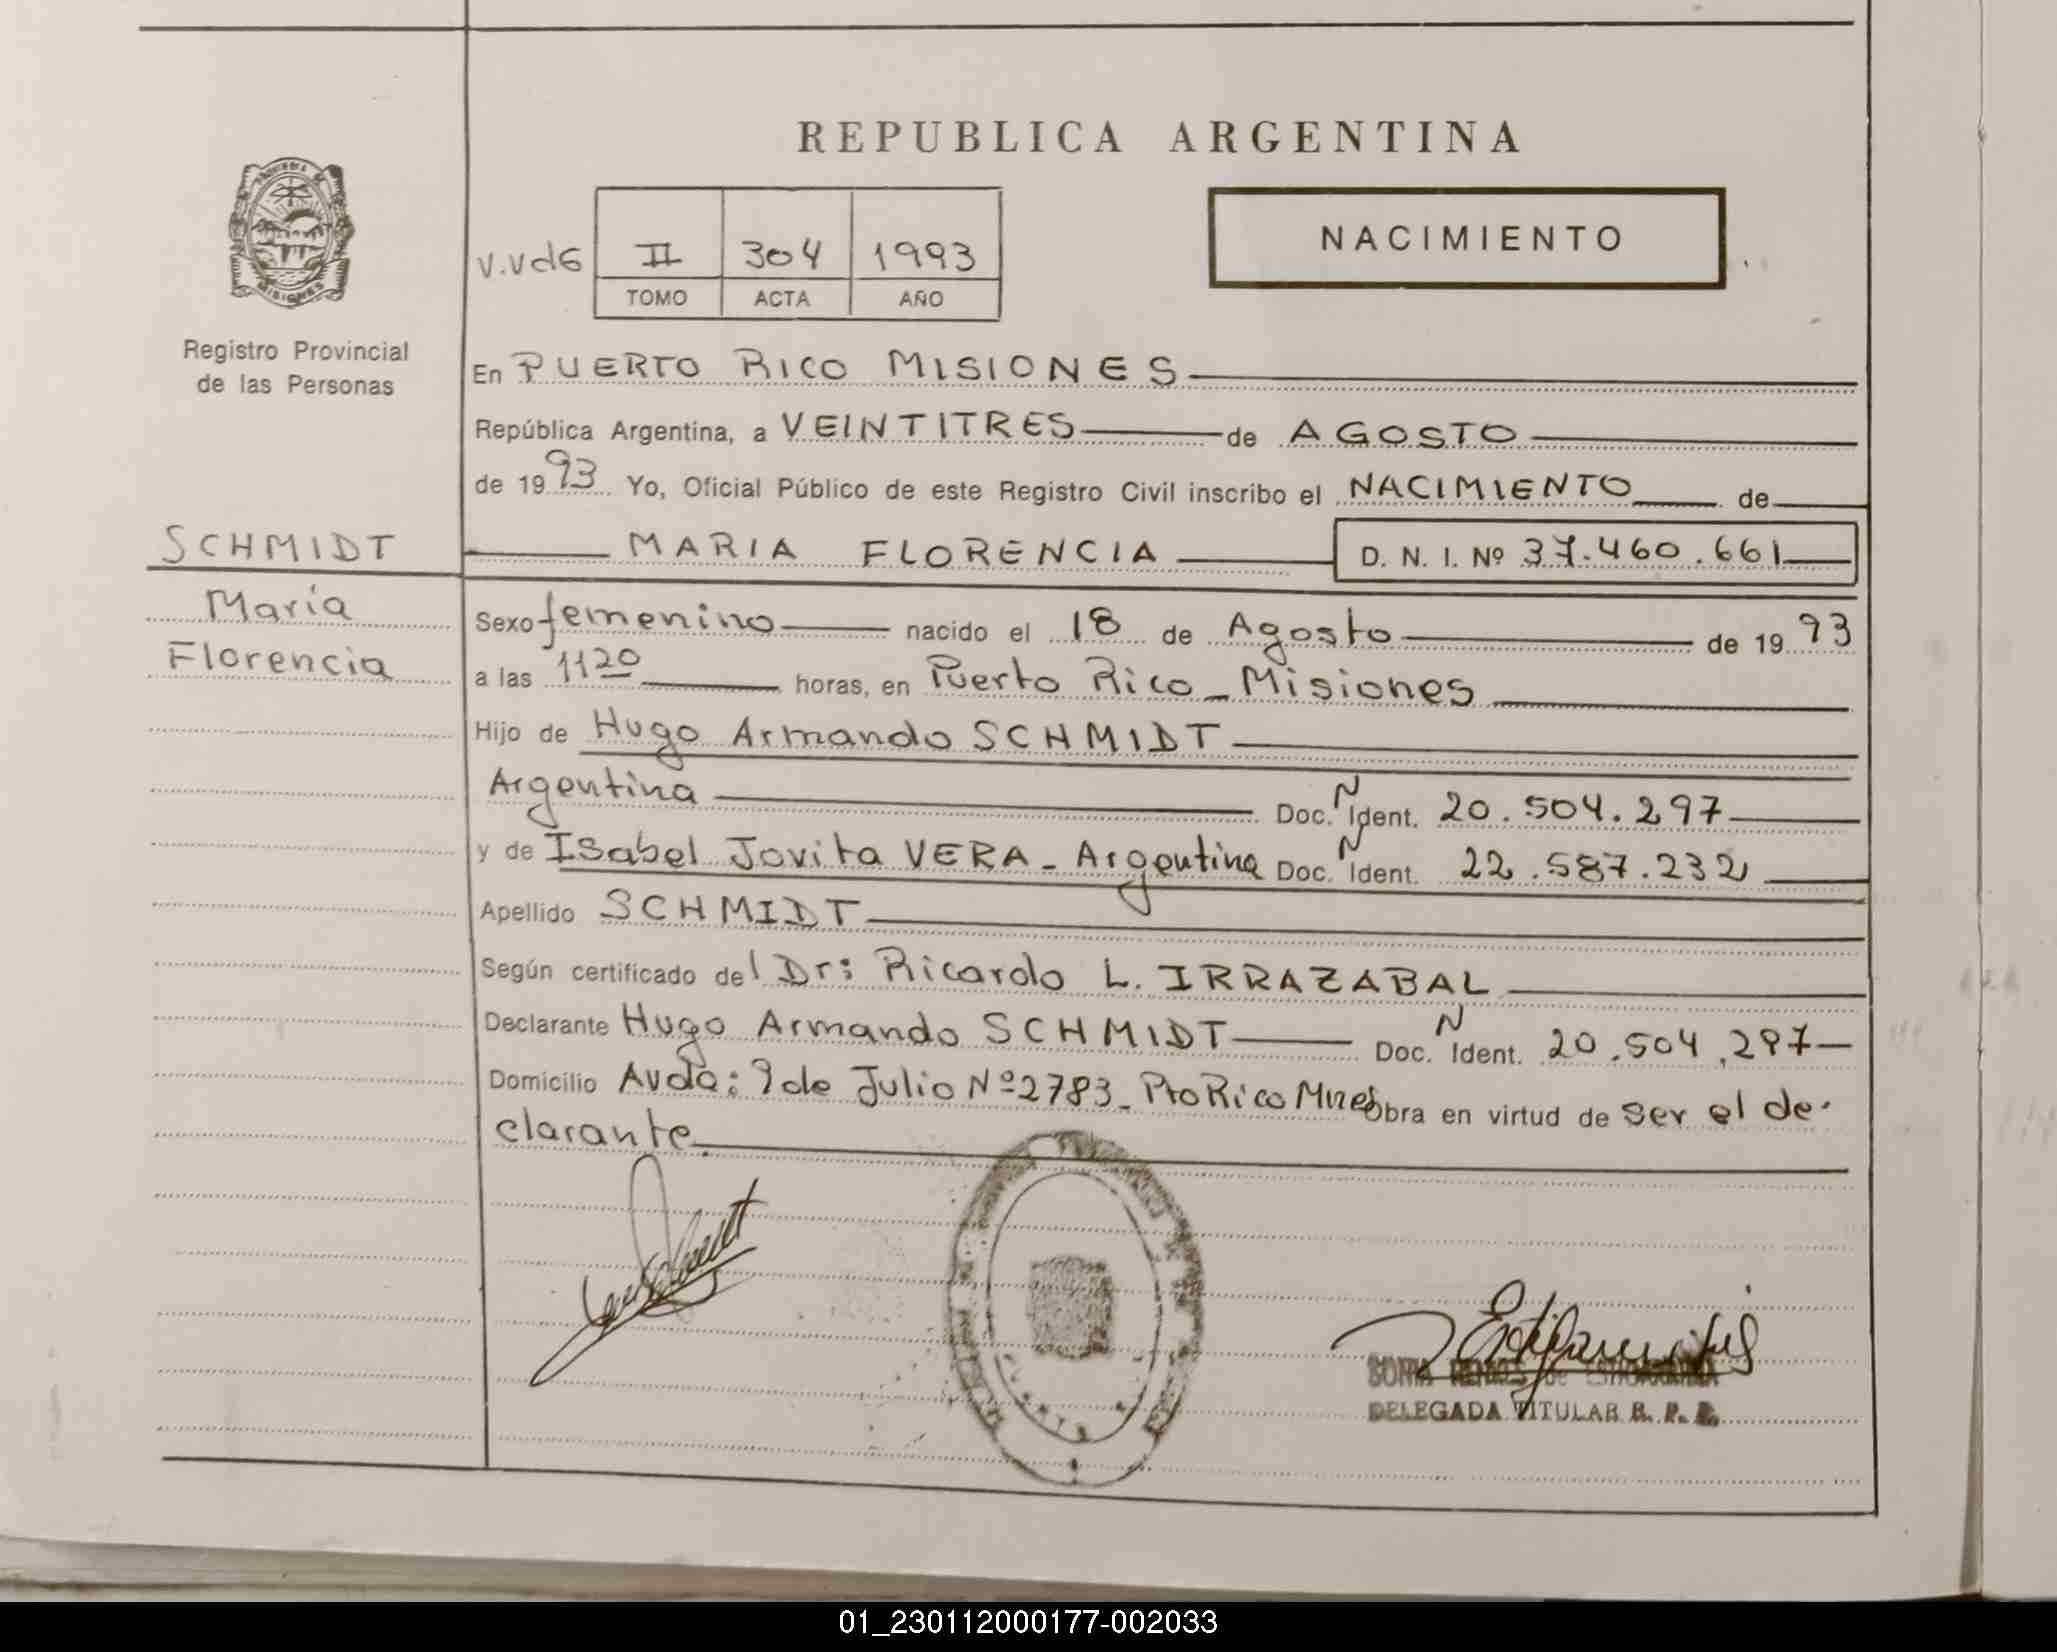 REPUBLICA ARGENTINA
V.VdG II 304 1993
TOMO ACTA AÑO
NACIMIENTO
MISIONES
Registro Provincial
de las Personas
En PUERTO RICO MISIONES
República Argentina, a VEINTITRES de AGOSTO
de 1993 Yo, Oficial Público de este Registro Civil inscribo el NACIMIENTO de
SCHMIDT
MARIA FLORENCIA D. N. I. Nº 37.460.661
María
Florencia
Sexo femenino nacido el 18 de Agosto de 1993
a las 1120 horas, en Puerto Rico_Misiones
Hijo de Hugo Armando SCHMIDT
Argentina Doc. N Ident. 20.504.297
y de Isabel Jovita VERA - Argentina Doc. N Ident. 22.587.232
Apellido SCHMIDT
Según certificado del Dr: Ricardo L. IRRAZABAL
Declarante Hugo Armando SCHMIDT Doc. N Ident. 20.504.297
Domicilio Avda: 9 de Julio Nº 2783_ Pto Rico Mnes obra en virtud de ser el de-
clarante
DELEGADA TITULAR R. P. P.
01_230112000177-002033